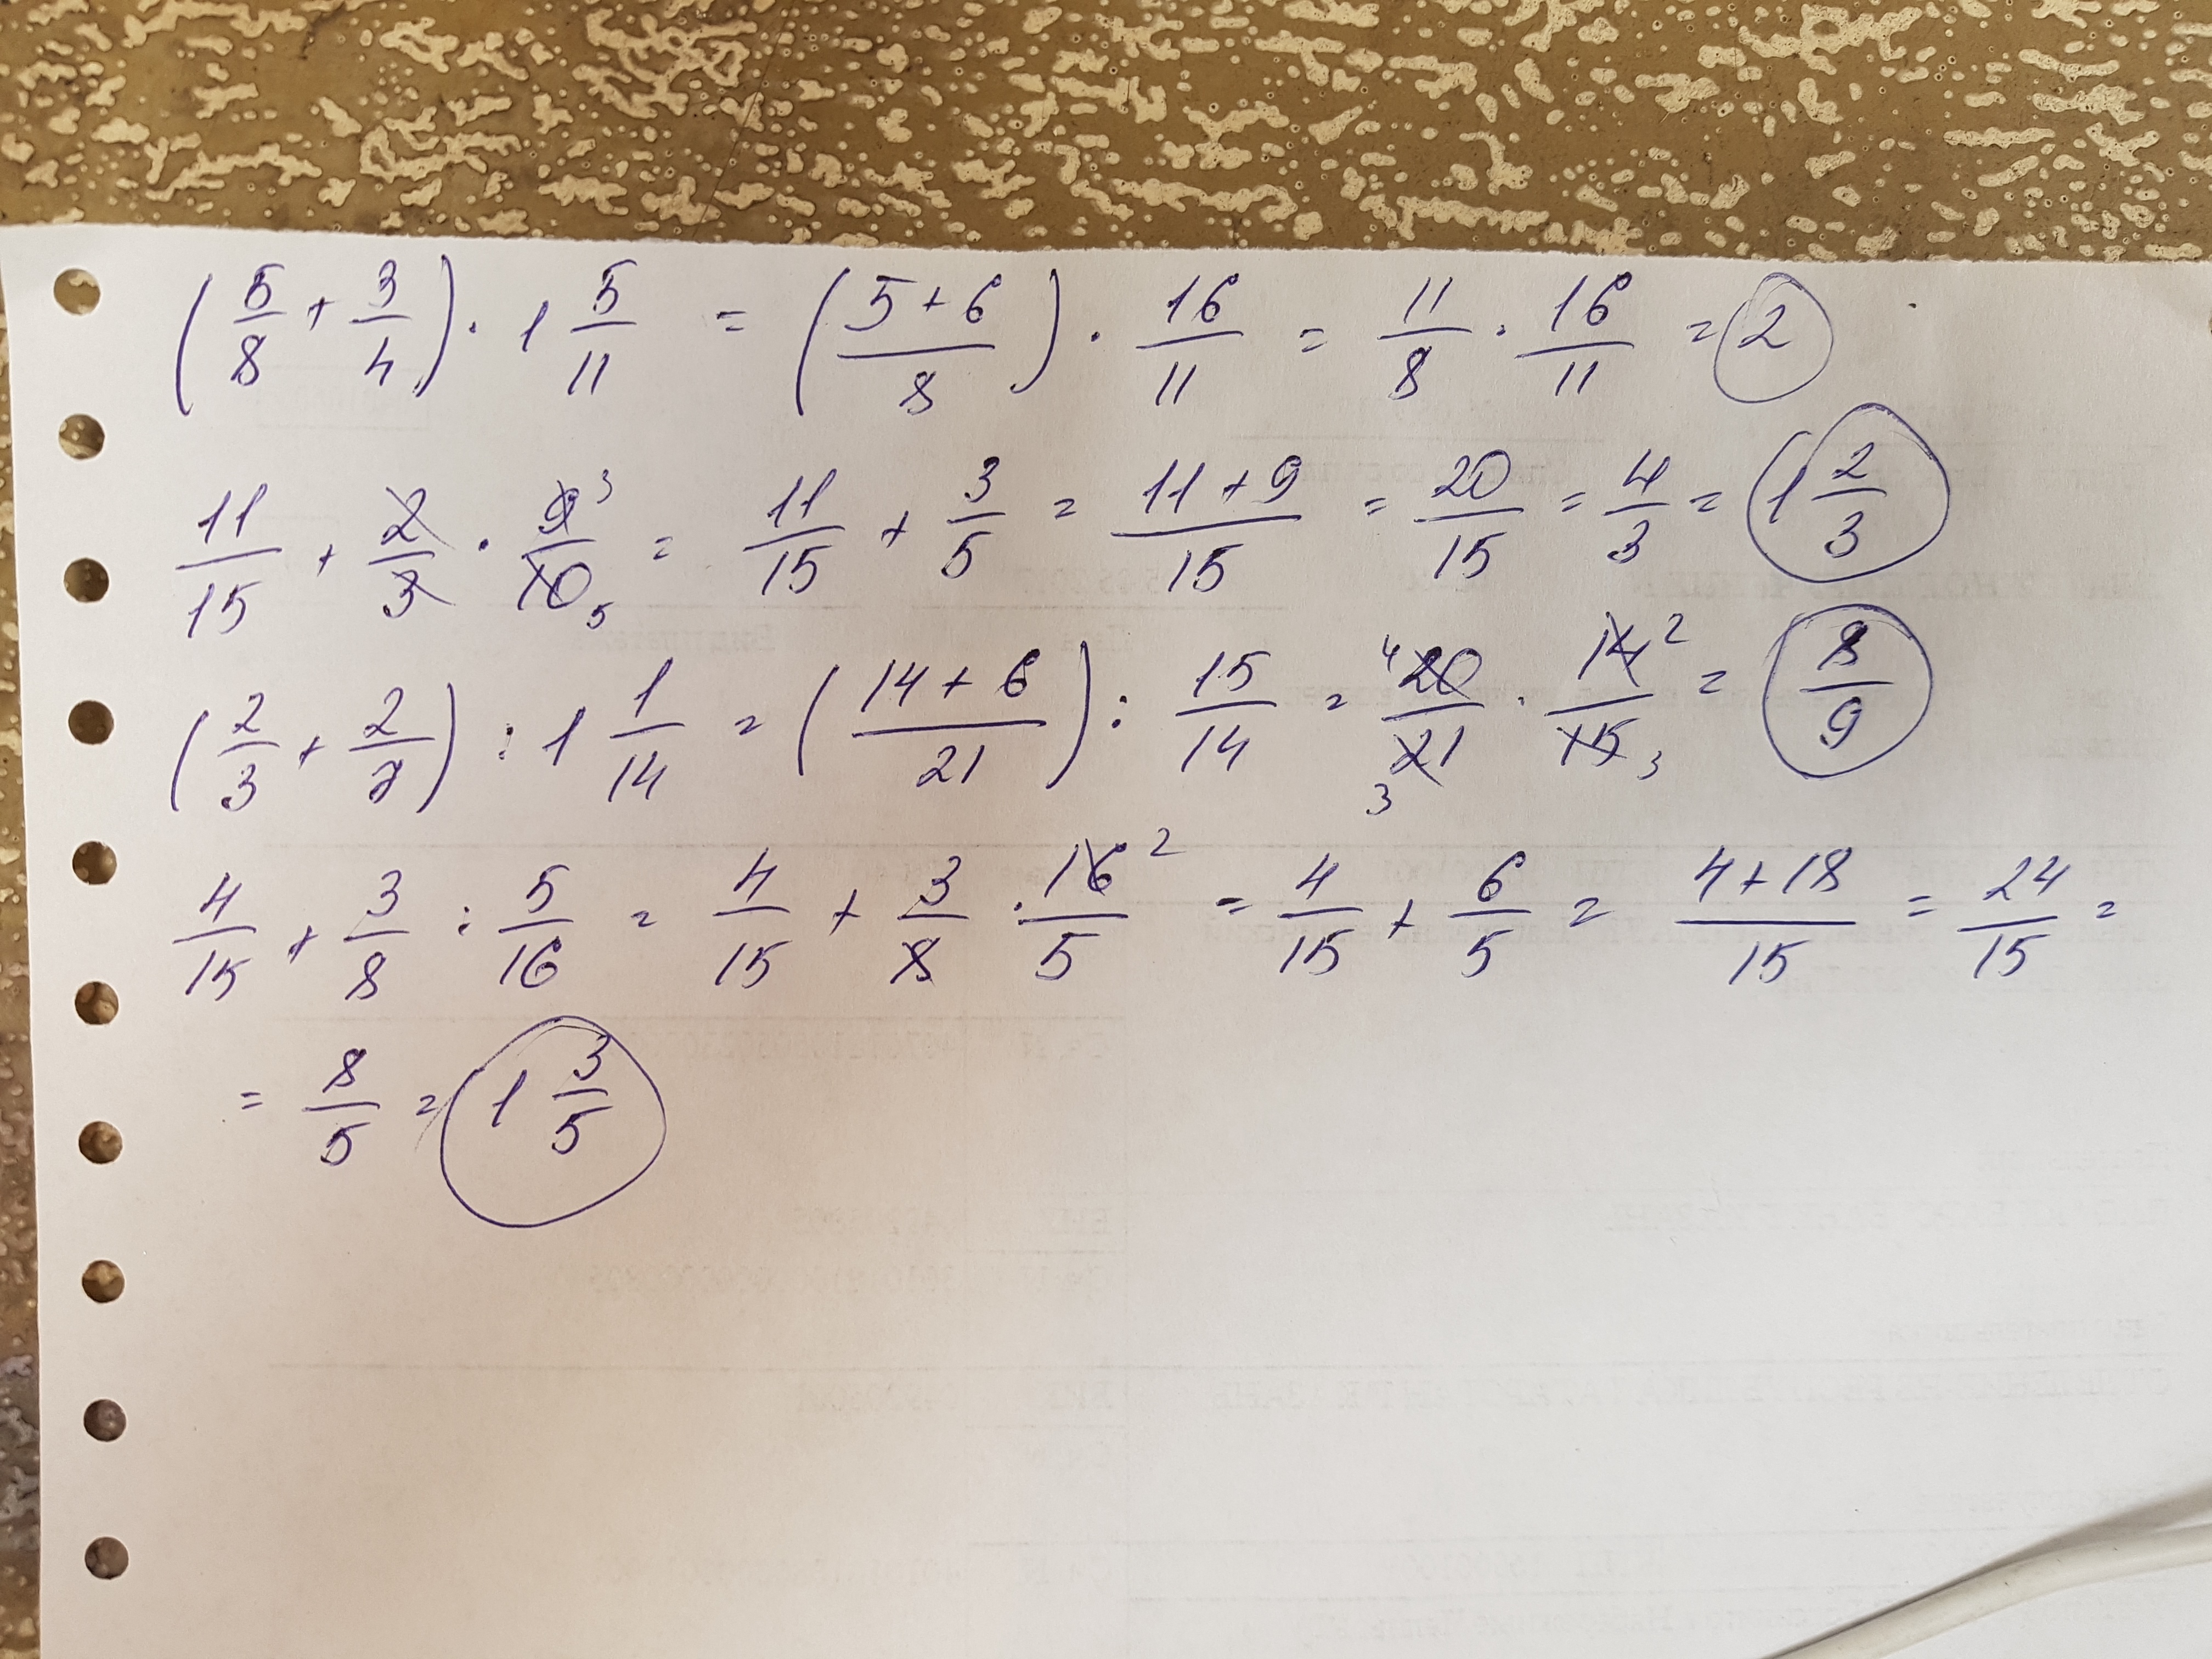 (5/8 + 3/4) · 1 5/11 = ((5+6)/8) · 16/11 = 11/8 · 16/11 = 2
11/15 + 2/3 · 9/10 3 5 = 11/15 + 3/5 = (11+9)/15 = 20/15 = 4/3 = 1 2/3
(2/3 + 2/7) : 1 1/14 = ((14+6)/21) : 15/14 = 4 20/21 3 · 14/15 2 3 = 8/9
4/15 + 3/8 : 5/16 = 4/15 + 3/8 · 16/5 2 = 4/15 + 6/5 = (4+18)/15 = 24/15 =
= 8/5 = 1 3/5